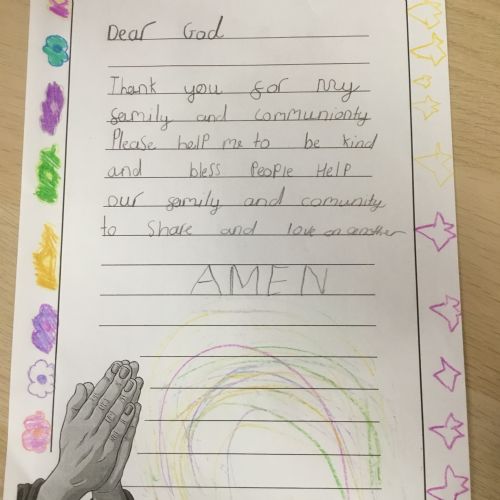 Dear God
Thank you for my
family and communionty
Please help me to be kind
and bless People Help
our family and comunity
to Share and love on another
AMEN